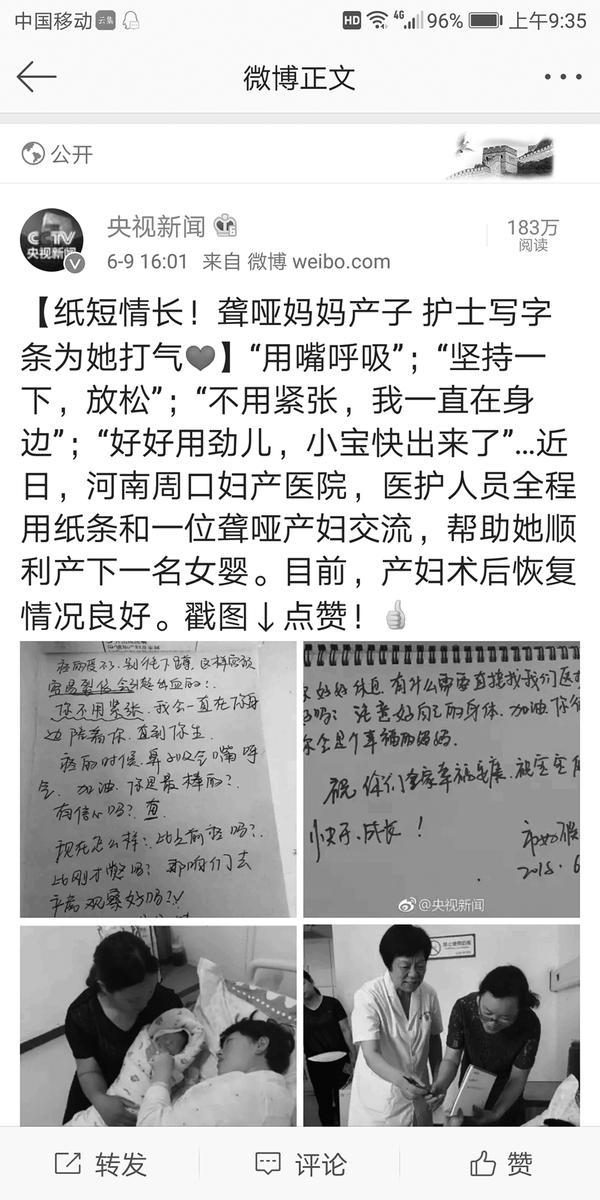 中国移动 云集 HD 4G 96% 上午9:35
微博正文
公开
央视新闻
183万
阅读
CCTV
央视新闻
6-9 16:01 来自 微博 weibo.com
【纸短情长！聋哑妈妈产子 护士写字
条为她打气❤】“用嘴呼吸”；“坚持一
下，放松”；“不用紧张，我一直在身
边”；“好好用劲儿，小宝快出来了”...近
日，河南周口妇产医院，医护人员全程
用纸条和一位聋哑产妇交流，帮助她顺
利产下一名女婴。目前，产妇术后恢复
情况良好。戳图↓点赞！👍
你不用紧张，我会一直在你身
边陪着你，直到你生
疼的时候，鼻子吸气嘴呼
气，加油，你是最棒的？
有信心吗？
现在怎么样：比之前疼吗？
比刚才疼吗？那咱们去
观察好吗？！
好好休息，有什么需要直接找我们医
吗？注意好自己的身体，加油
你会是个幸福的妈妈。
祝你们全家幸福安康，祝宝宝
快乐成长！
2018.6
@央视新闻
转发 评论 赞